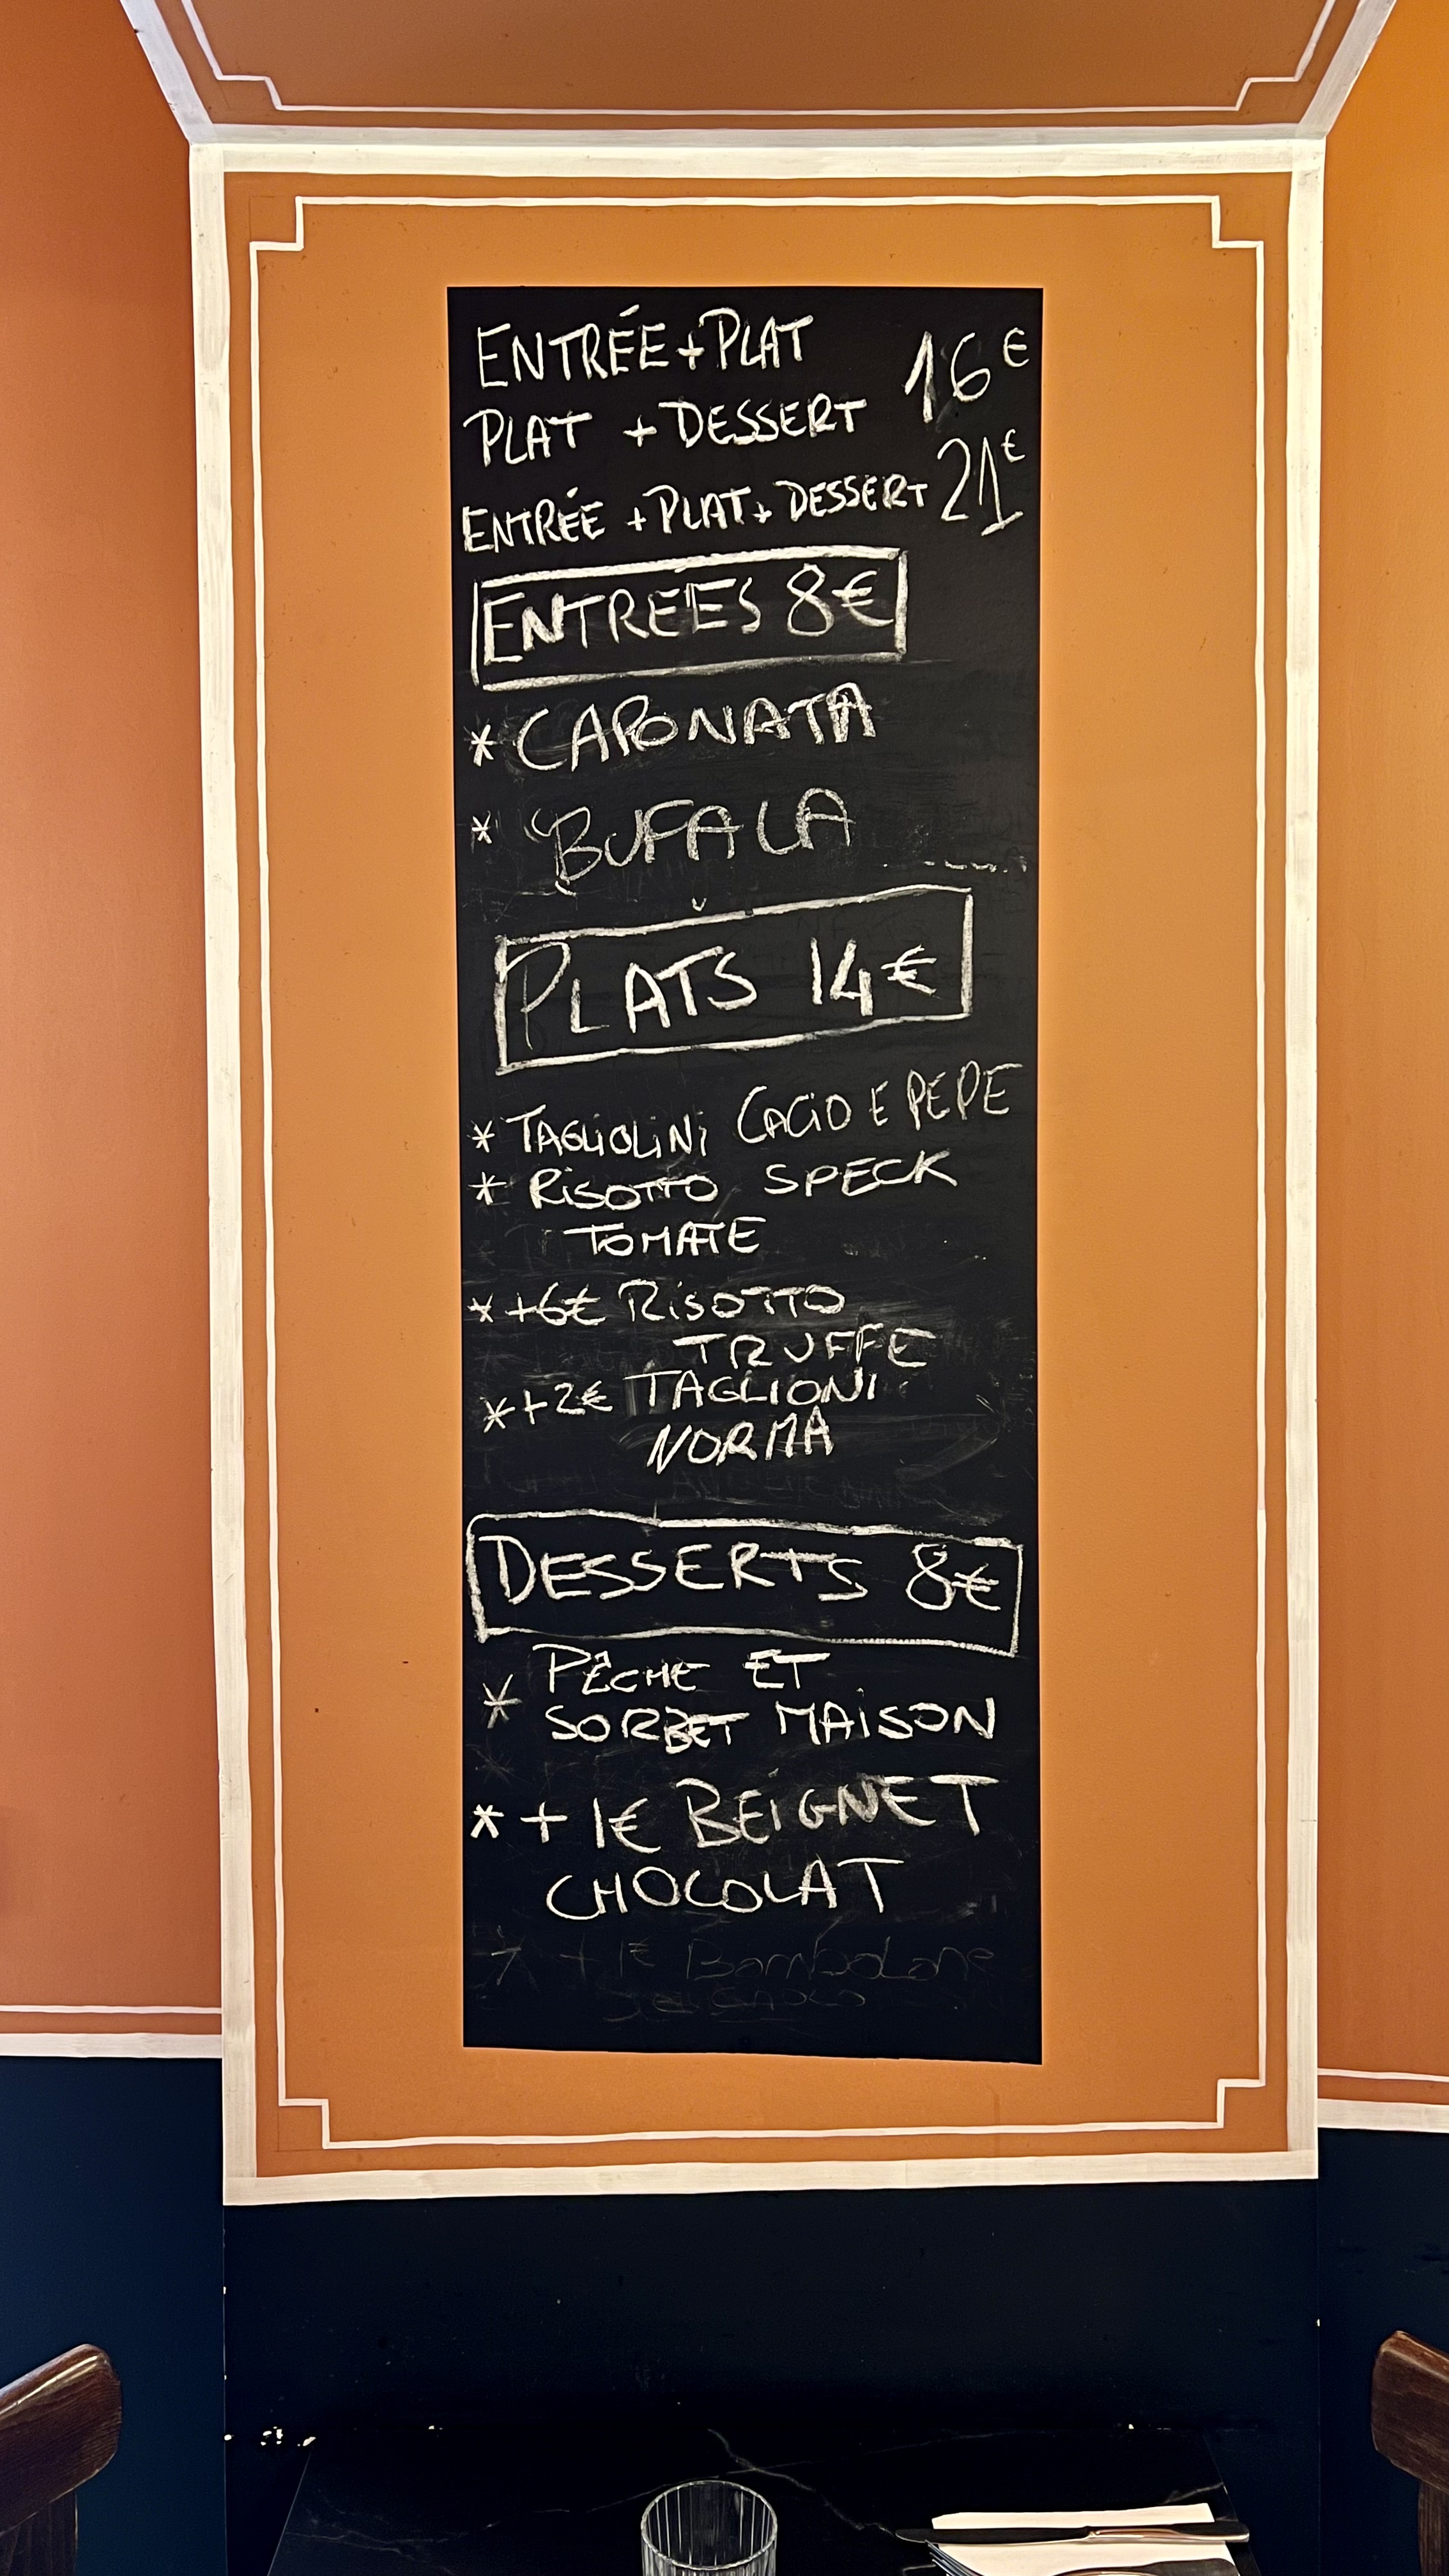 ENTRÉE + PLAT
PLAT + DESSERT 16€
ENTRÉE + PLAT + DESSERT 21€
ENTRÉES 8€
* CAPONATA
* BUFALA
PLATS 14€
* TAGLIOLINI CACIO E PEPE
* RISOTTO SPECK
TOMATE
* +6€ RISOTTO
TRUFFE
* +2€ TAGLIONI
NORMA
DESSERTS 8€
* PÊCHE ET
SORBET MAISON
* + 1€ BEIGNET
CHOCOLAT
* + 1€ Bombolone